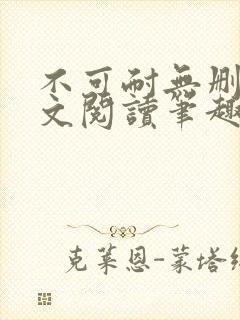 不可耐無删
文閱讀筆趣
克萊恩-蒙塔